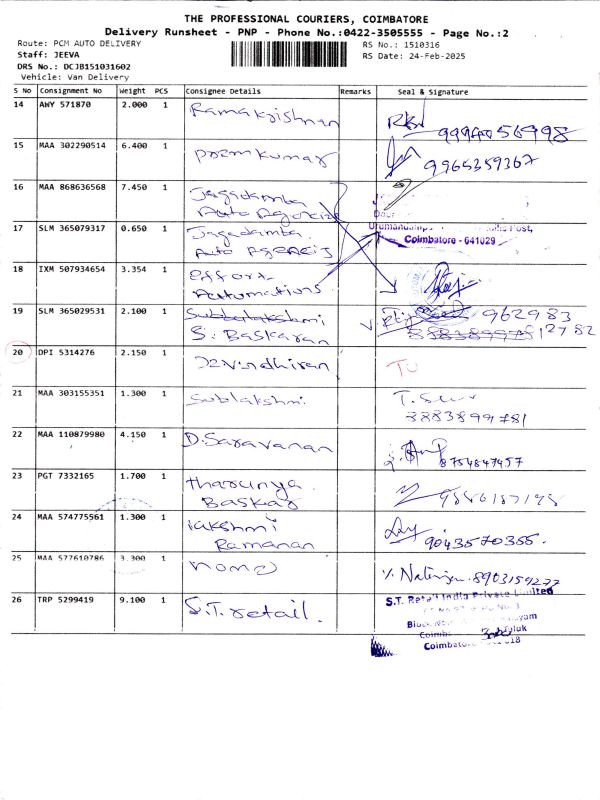 THE PROFESSIONAL COURIERS, COIMBATORE
Delivery Runsheet - PNP - Phone No.:0422-3505555 - Page No.:2
Route: PCM AUTO DELIVERY
Staff: JEEVA
DRS No.: DCJB151031602
Vehicle: Van Delivery
RS No.: 1510316
RS Date: 24-Feb-2025
S No Consignment No Weight PCS Consignee Details Remarks Seal & Signature
14 AWY 571870 2.000 1 Ramakrishnan 9994056998
15 MAA 302290514 6.400 1 Premkumar 9965359367
16 MAA 868636568 7.450 1 Jagadamba
Auto Agencies
17 SLM 365079317 0.650 1 Jagadamba
Auto Agencies
Post,
Coimbatore - 641029
18 IXM 507934654 3.354 1 Effort
Automations
19 SLM 365029531 2.100 1 Sublalakshmi
S. Baskaran
962983
12782
20 DPI 5314276 2.150 1 Devindhiran TU
21 MAA 303155351 1.300 1 Sublakshmi
3883899781
22 MAA 110879980 4.150 1 D.Saravanan 8754847457
23 PGT 7332165 1.700 1 Tharunya
Baskar
24 MAA 574775561 1.300 1 Lakshmi
Ramanan
9043570355.
25 MAA 577610786 3.300 1 8903159277
26 TRP 5299419 9.100 1 S.T. retail.
S.T. Retail India Private Limited
Coimbatore